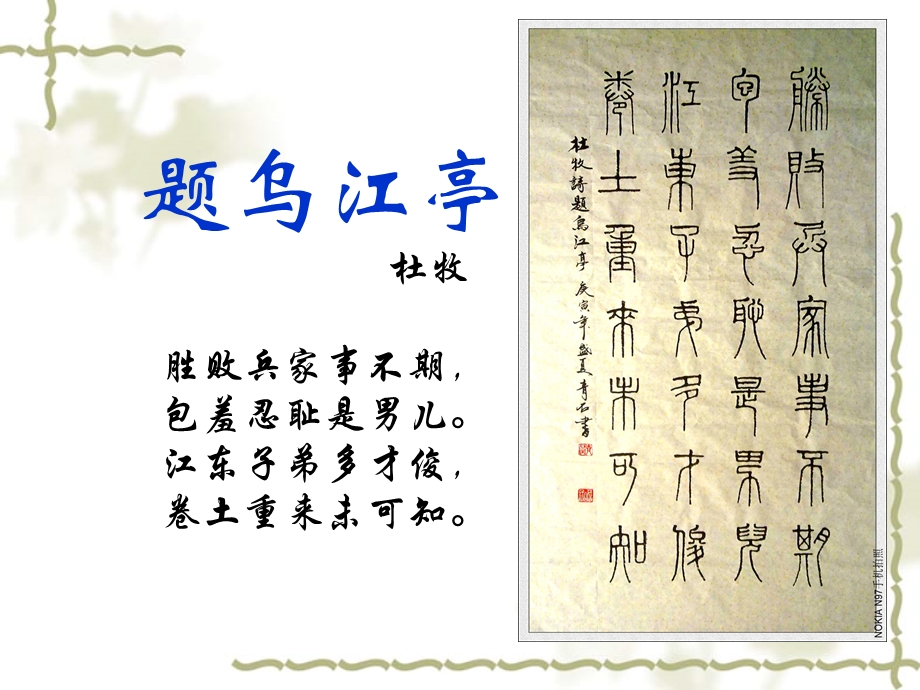 题乌江亭
杜牧
胜败兵家事不期，
包羞忍耻是男儿。
江东子弟多才俊，
卷土重来未可知。
勝敗兵家事不期
包羞忍恥是男兒
江東子弟多才俊
卷土重來未可知
杜牧詩題烏江亭 庚寅年盛夏青石書
NOKIA N97手机拍照